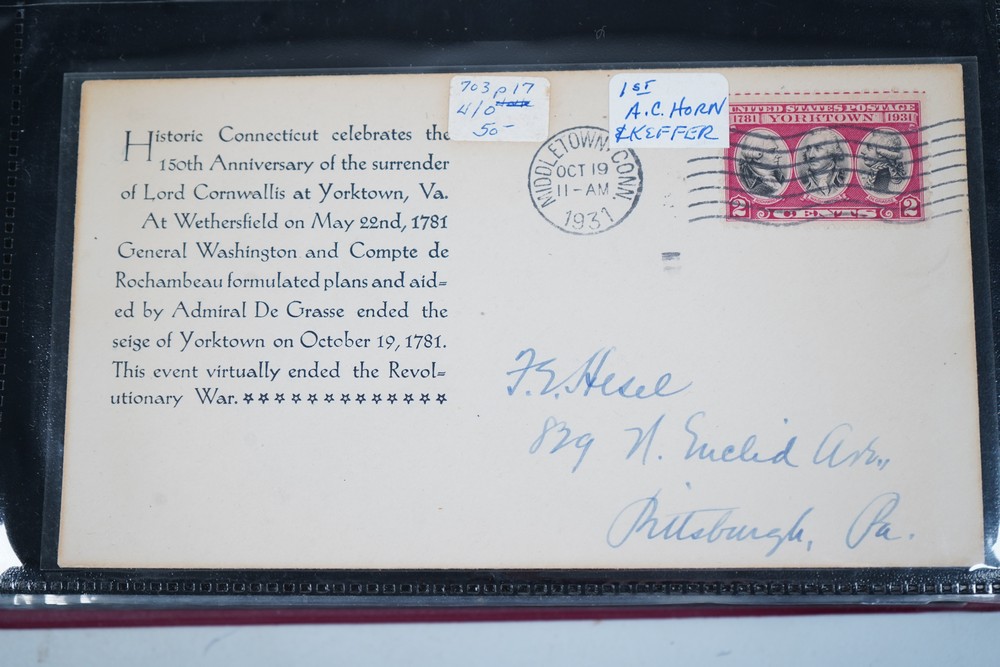 Historic Connecticut celebrates the
150th Anniversary of the surrender
of Lord Cornwallis at Yorktown, Va.
At Wethersfield on May 22nd, 1781
General Washington and Compte de
Rochambeau formulated plans and aid=
ed by Admiral De Grasse ended the
seige of Yorktown on October 19, 1781.
This event virtually ended the Revol=
utionary War. ☆☆☆☆☆☆☆☆☆☆☆☆☆
703 p 17
4/0
50-
1ST
A.C. HORN
& KEFFER
MIDDLETOWN, CONN.
OCT 19
11-AM
1931
UNITED STATES POSTAGE
1781 YORKTOWN 1931
2 CENTS 2
F.E. Hesel
829 N. Euclid Ave.,
Pittsburgh, Pa.